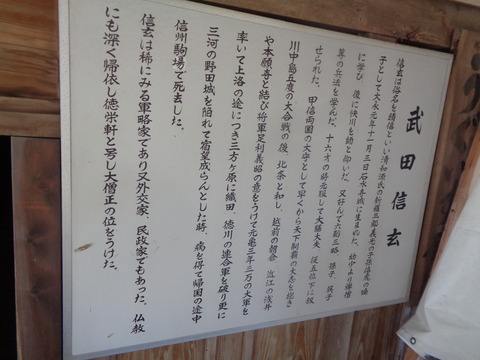 武田信玄
信玄は俗名を晴信といい清和源氏の新羅三郎義光の子孫信虎の嫡
子として大永元年十一月三日石水寺城に生まれた。幼少より禅僧
に学び 後に快川を師と仰いだ。又好んで六韜三略 孫子 呉子
等の兵法を学んだ。十六才の時元服して大膳大夫 従五位下に叙
せられた。甲信両国の太守として早くから天下制覇の大志を抱き
川中島五度の大合戦の後、北条と和し、越前の朝倉 近江の浅井
や本願寺と結び将軍足利義昭の意をうけて元亀三年三万の大軍を
率いて上洛の途につき三方ヶ原に織田、徳川の連合軍を破り更に
三河の野田城を陥れて宿望成らんとした時、病を得て帰国の途中
信州駒場で死去した。
信玄は稀にみる軍略家であり又外交家、民政家でもあった。仏教
にも深く帰依し徳栄軒と号し大僧正の位をうけた。